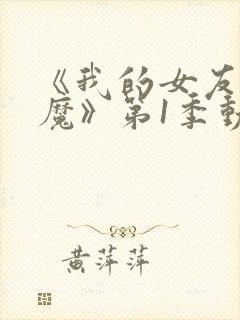 《我的女友
魔》第1季動
黄萍萍